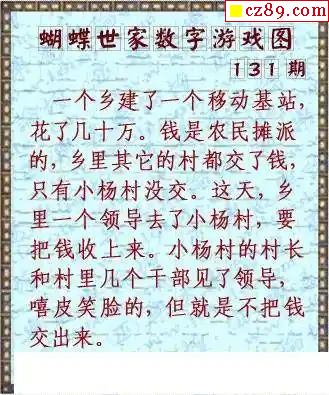 cz89.com
蝴蝶世家数字游戏图
131期
一个乡建了一个移动基站，
花了几十万。钱是农民摊派
的，乡里其它的村都交了钱，
只有小杨村没交。这天，乡
里一个领导去了小杨村，要
把钱收上来。小杨村的村长
和村里几个干部见了领导，
嘻皮笑脸的，但就是不把钱
交出来。